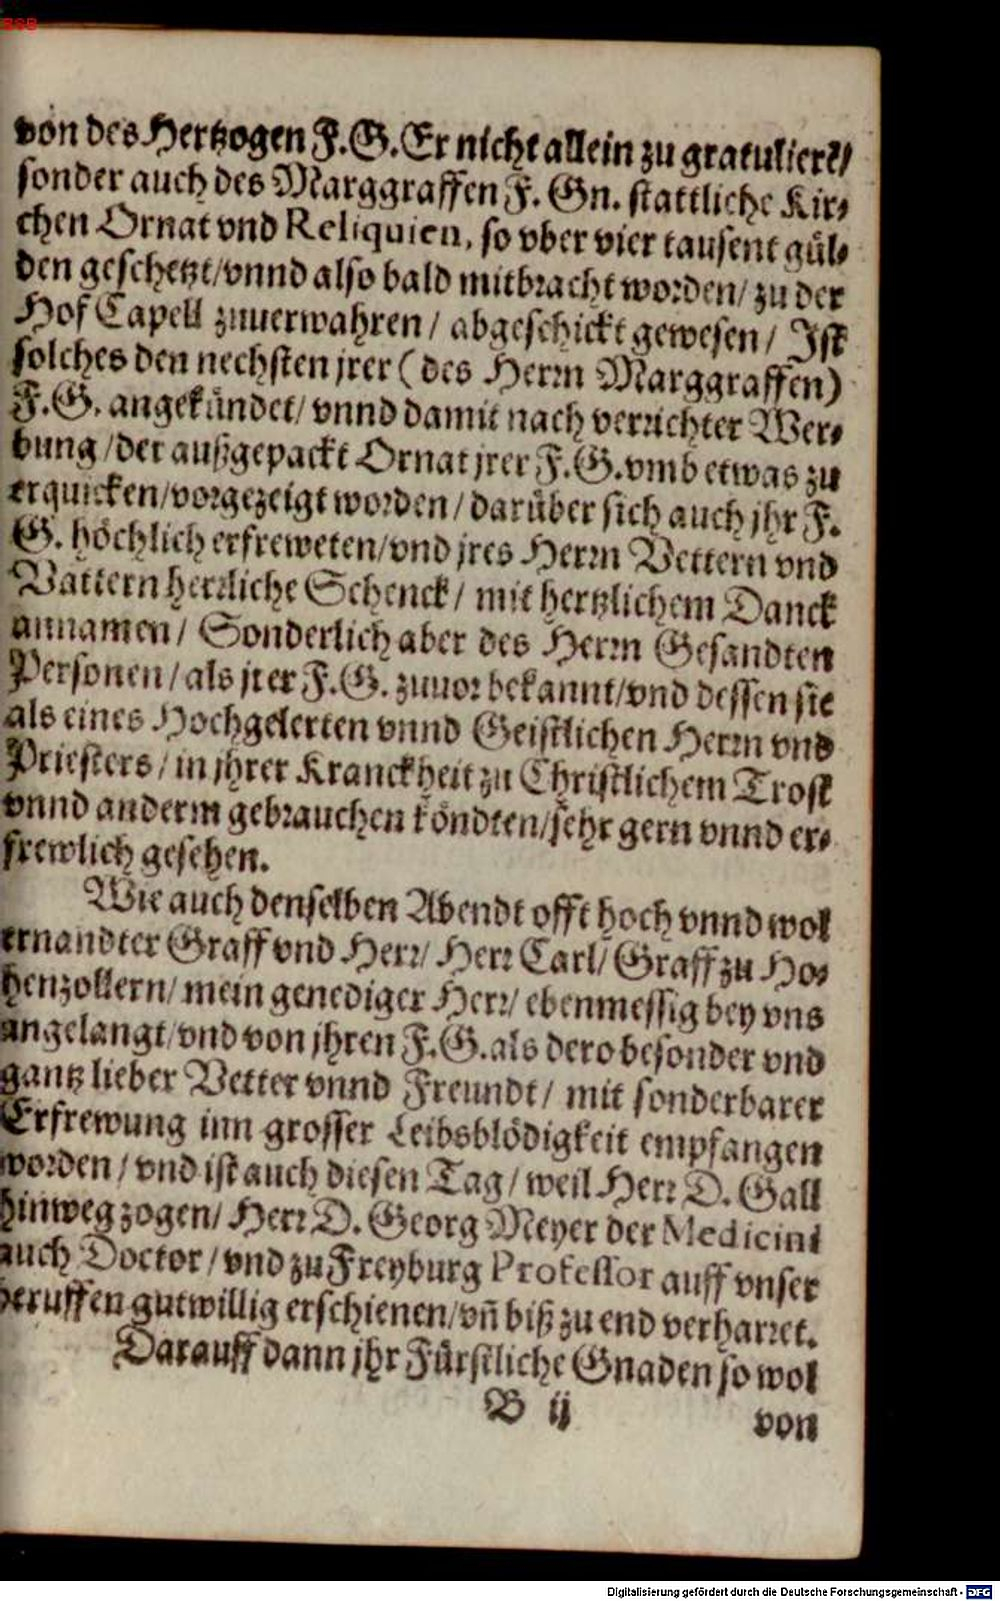 BSB
von des Hertzogen F.G. Er nicht allein zu gratuliert/
sonder auch des Marggraffen F. Gn. stattliche Kir-
chen Ornat vnd Reliquien, so vber vier tausent gül-
den geschetzt/vnnd also bald mitbracht worden/ zu der
Hof Capell zuuerwahren / abgeschickt gewesen / Ist
solches den nechsten jrer (des Herrn Marggraffen)
F.G. angekündet/ vnnd damit nach verrichter Wer-
bung /der außgepackt Ornat jrer F.G. vmb etwas zu
erquicken/vorgezeigt worden / darüber sich auch jhr F.
G. höchlich erfreweten/vnd jres Herrn Vettern vnd
Vattern herrliche Schenck / mit hertzlichem Danck
annamen / Sonderlich aber des Herrn Gesandten
Personen / als jrer F.G. zuuor bekannt/vnd dessen sie
als eines Hochgelerten vnnd Geistlichen Herrn vnd
Priesters / in jhrer Kranckheit zu Christlichem Trost
vnnd anderm gebrauchen köndten/sehr gern vnnd er-
frewlich gesehen.
Wie auch denselben Abendt offt hoch vnnd wol
ernandter Graff vnd Herr/ Herr Carl/ Graff zu Ho-
henzollern/ mein genediger Herr/ ebenmessig bey vns
angelangt/vnd von jhren F.G. als dero besonder vnd
gantz lieber Vetter vnnd Freundt / mit sonderbarer
Erfrewung inn grosser Leibsblödigkeit empfangen
worden / vnd ist auch diesen Tag / weil Herr D. Gall
hinweg zogen/ Herr D. Georg Meyer der Medicini
auch Doctor / vnd zu Freyburg Professor auff vnser
beruffen gutwillig erschienen/vñ biß zu end verharret.
Darauff dann jhr Fürstliche Gnaden so wol
B ij
von
Digitalisierung gefördert durch die Deutsche Forschungsgemeinschaft - DFG